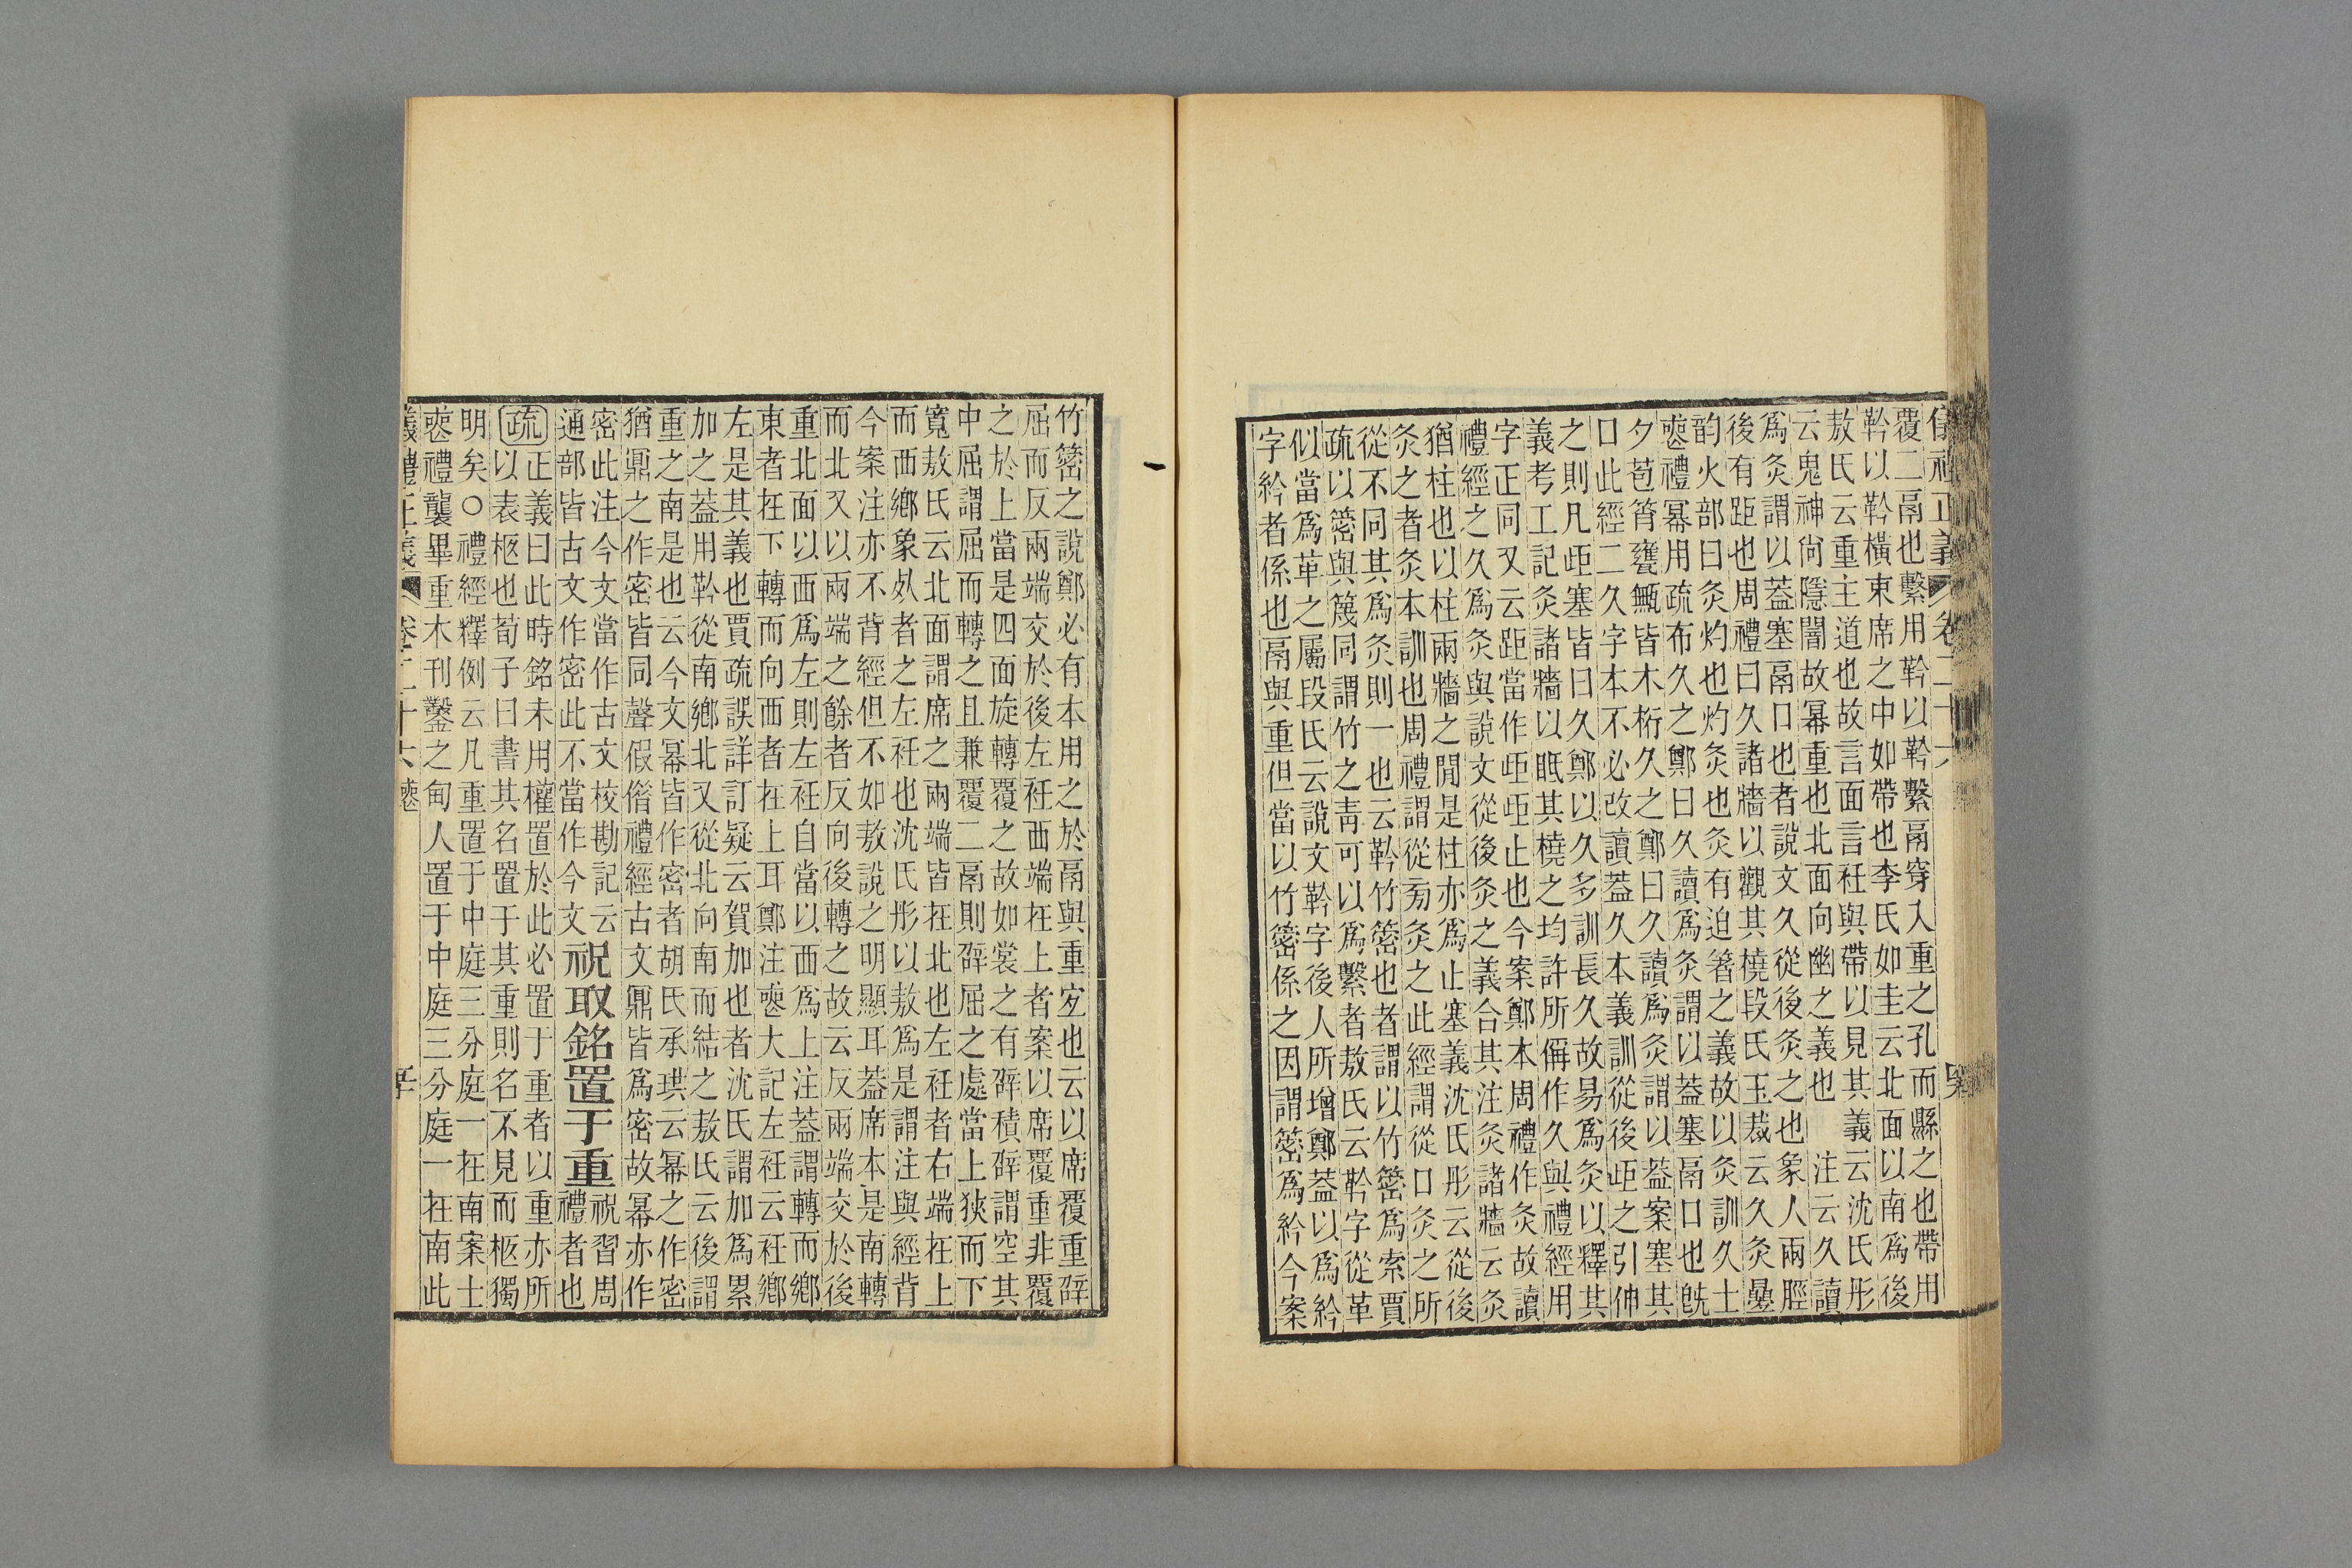 正義　卷二十六
覆二鬲也繫用靲以靲繫鬲穿入重之孔而縣之也帶用
靲以靲橫東席之中如帶也李氏如圭云北面以南爲後
敖氏云重主道也故言面言衽與帶以見其義云沈氏彤
云鬼神尚隱闇故冪重也北面向幽之義也　注云久讀
爲灸謂以蓋塞鬲口也者說文久從後灸之也象人兩脛
後有距也周禮曰久諸牆以觀其橈段氏玉裁云久灸曡
韵火部曰灸灼也灼灸也灸有迫箸之義故以灸訓久士
喪禮冪用疏布久之鄭曰久讀爲灸謂以蓋塞鬲口也旣
夕苞筲甕甒皆木桁久之鄭曰久讀爲灸謂以蓋案塞其
口此經二久字本不必改讀蓋久本義訓從後歫之引伸
之則凡歫塞皆曰久鄭以久多訓長久故易爲灸以釋其
義考工記灸諸牆以眡其橈之均許所偁作久與禮經用
字正同又云距當作歫歫止也今案鄭本周禮作灸故讀
禮經之久爲灸與說文從後灸之義合其注灸諸牆云灸
猶柱也以柱兩牆之閒是柱亦爲止塞義沈氏彤云從後
灸之者灸本訓也周禮謂從旁灸之此經謂從口灸之所
從不同其爲灸則一也云靲竹䈼也者謂以竹䈼爲索賈
疏以䈼與篾同謂竹之靑可以爲繫者敖氏云靲字從革
似當爲革之屬段氏云說文靲字後人所增鄭蓋以爲紟
字紟者係也鬲與重但當以竹䈼係之因謂䈼爲紟今案
竹䈼之說鄭必有本用之於鬲與重宐也云以席覆重辟
屈而反兩端交於後左衽西端在上者案以席覆重非覆
之於上當是四面旋轉覆之故如裳之有辟積辟謂空其
中屈謂屈而轉之且兼覆二鬲則辟屈之處當上狹而下
寬敖氏云北面謂席之兩端皆在北也左衽者右端在上
而西鄉象死者之左衽也沈氏彤以敖爲是謂注與經背
今案注亦不背經但不如敖說之明顯耳蓋席本是南轉
而北又以兩端之餘者反向後轉之故云反兩端交於後
重北面以西爲左則左衽自當以西爲上注蓋謂轉而鄉
東者在下轉而向西者在上耳鄭注喪大記左衽云衽鄉
左是其義也賈疏誤詳訂疑云賀加也者沈氏謂加爲累
加之蓋用靲從南鄉北又從北向南而結之敖氏云後謂
重之南是也云今文冪皆作密者胡氏承珙云冪之作密
猶鼏之作密皆同聲假偺禮經古文鼏皆爲密故冪亦作
密此注今文當作古文校勘記云
通部皆古文作密此不當作今文
祝取銘置于重
祝習周
禮者也
疏
正義曰此時銘未用權置於此必置于重者以重亦所
以表柩也荀子曰書其名置于其重則名不見而柩獨
明矣○禮經釋例云凡重置于中庭三分庭一在南案士
喪禮襲畢重木刊鑿之甸人置于中庭三分庭一在南此